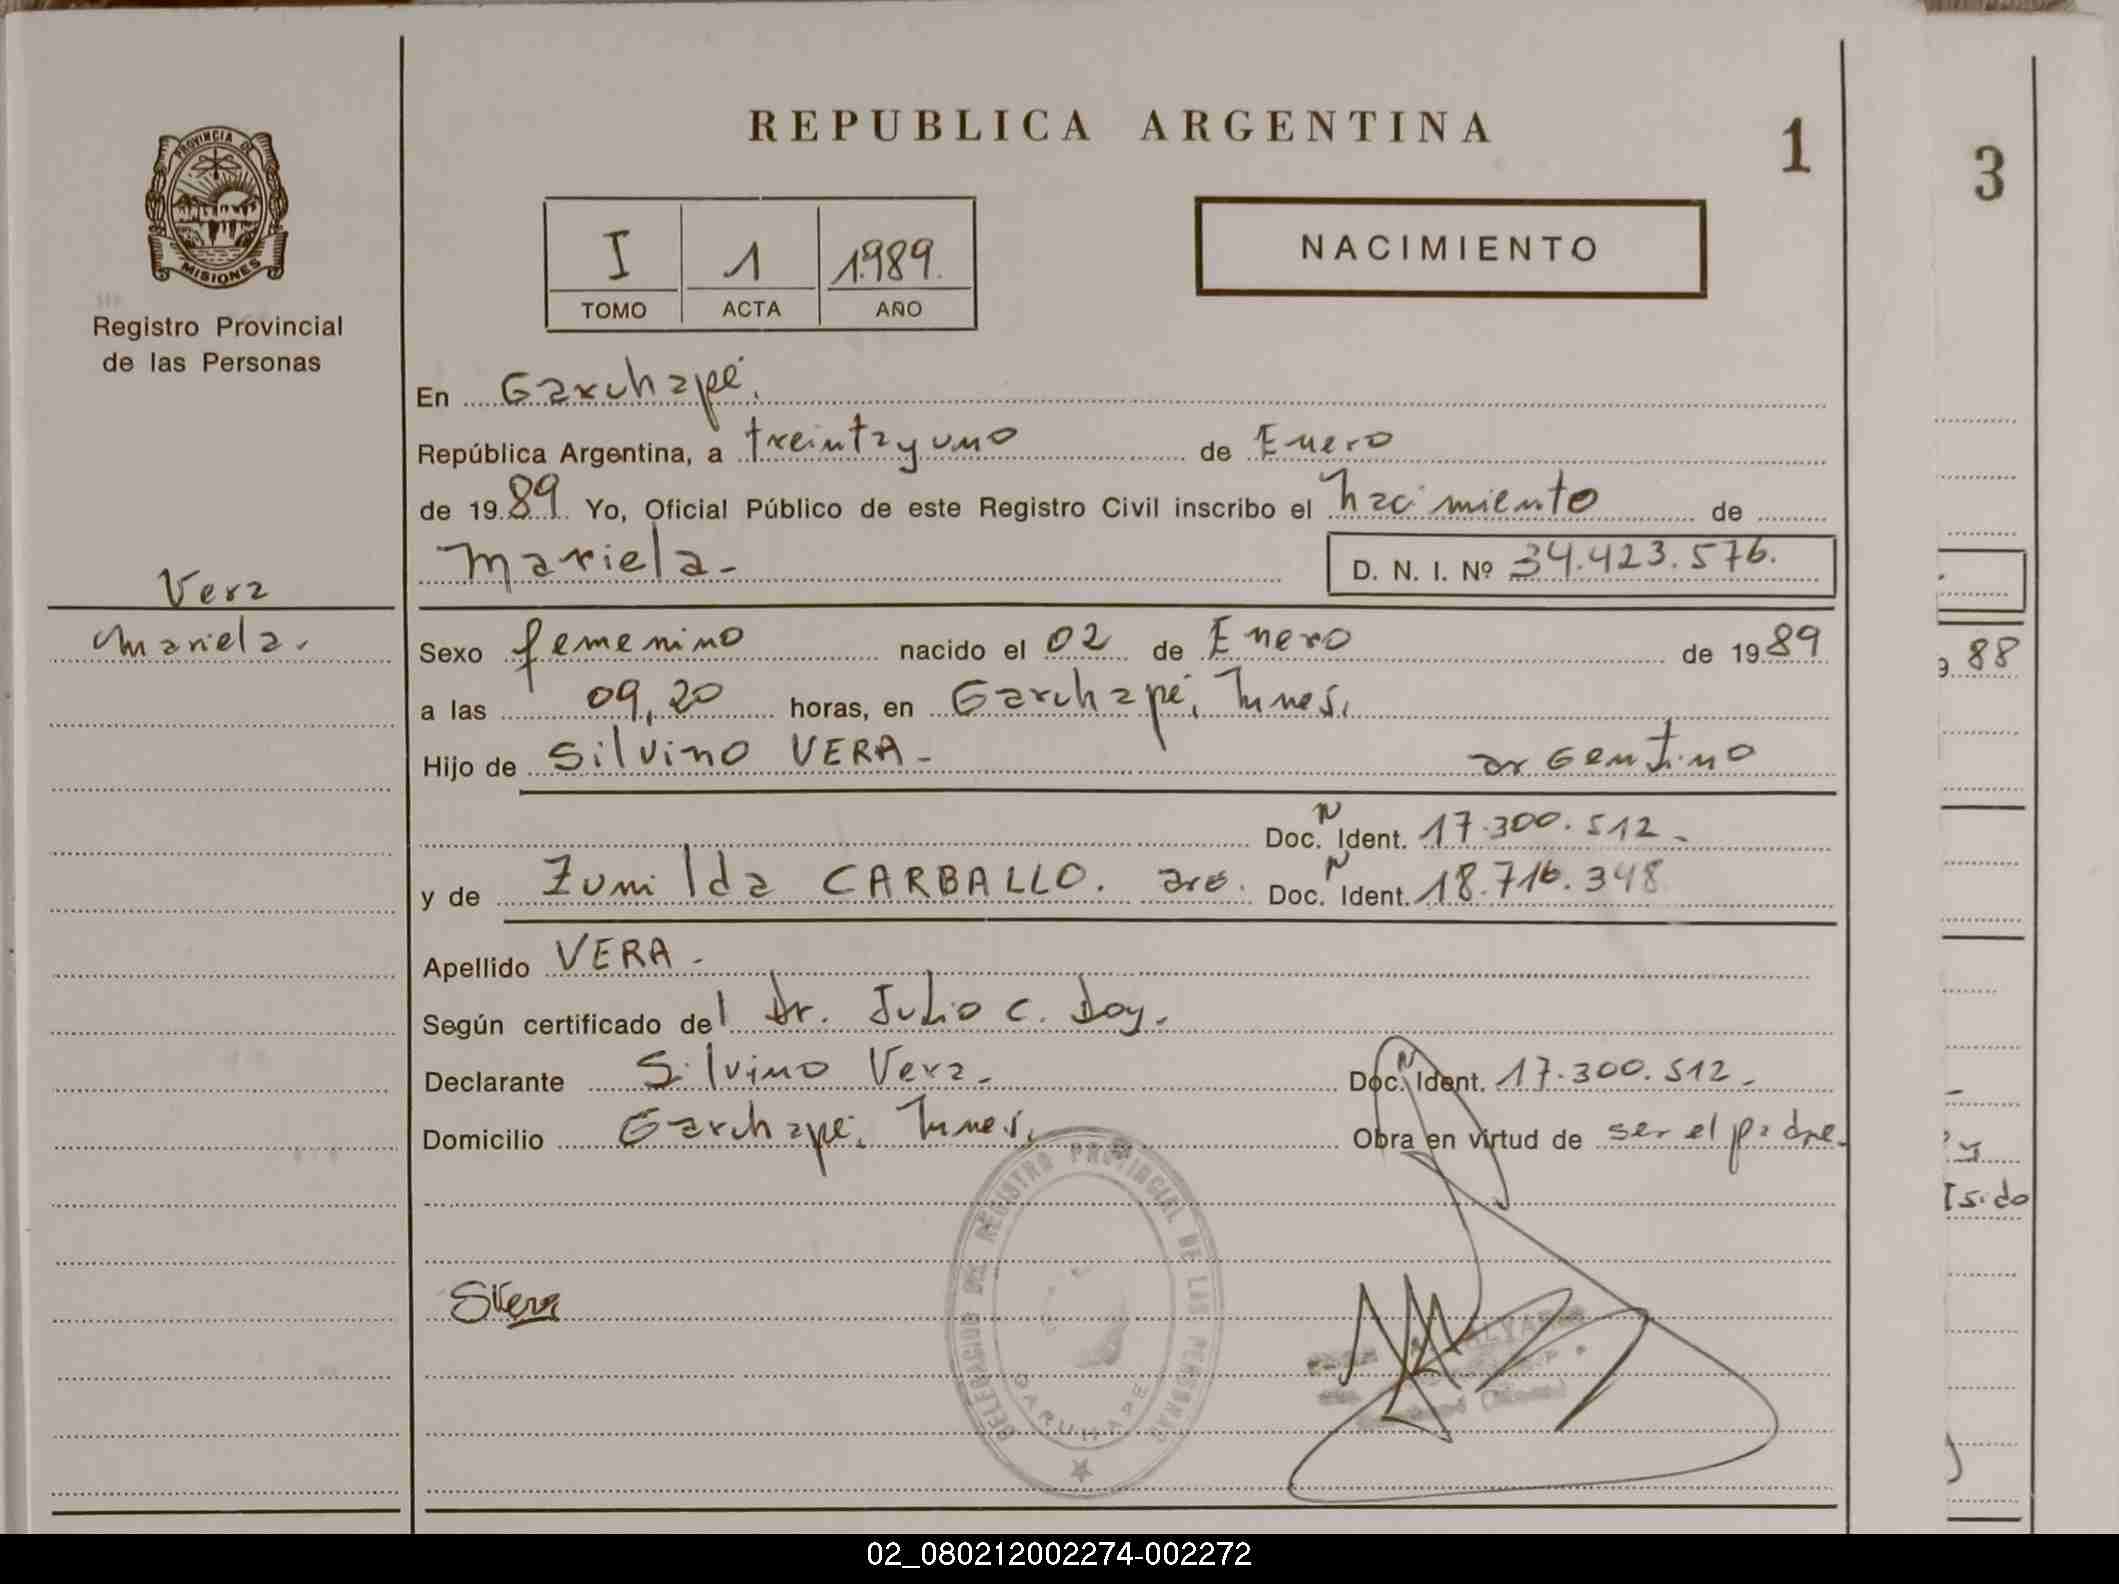 REPUBLICA ARGENTINA
1
3
PROVINCIA DE
MISIONES
Registro Provincial
de las Personas
I 1 1989.
TOMO ACTA AÑO
NACIMIENTO
En Garuhapé.
República Argentina, a treinta y uno de Enero
de 1989. Yo, Oficial Público de este Registro Civil inscribo el nacimiento de
Mariela - D. N. I. Nº 34.423.576.
Vera
Mariela.
Sexo femenino nacido el 02 de Enero de 1989
a las 09,20 horas, en Garuhapé,
Hijo de Silvino VERA - argentino
Doc. N Ident. 17.300.512 -
y de Zunilda CARBALLO. arg. Doc. N Ident. 18.716.348
Apellido VERA -
Según certificado del Dr. Julio C. Doy.
Declarante Silvino Vera - Doc. N Ident. 17.300.512 -
Domicilio Garuhapé, Obra en virtud de ser el padre.
SVera
DELEGACION DEL REGISTRO PROVINCIAL DE LAS PERSONAS
GARUHAPE
88
Isido
02_080212002274-002272